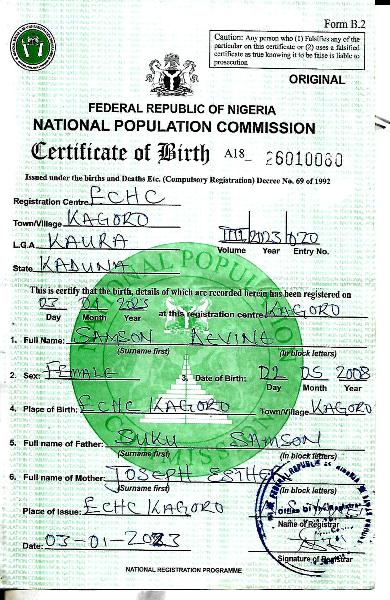 Form B.2
Caution: Any person who (1) Falsifies any of the
particular on this certificate or (2) uses a falsified
certificate as true knowing it to be false is liable to
prosecution
ORIGINAL
FEDERAL REPUBLIC OF NIGERIA
NATIONAL POPULATION COMMISSION
Certificate of Birth A18_ 26010060
Issued under the births and Deaths Etc. (Compulsory Registration) Decree No. 69 of 1992
Registration Centre ECHC
Town/Village KAGORO
III 2023 070
L.G.A. KAURA Volume Year Entry No.
State KADUNA
This is certify that the birth, details of which are recorded herein has been registered on
03 01 2023 at this registration centre KAGORO
Day Month Year
1. Full Name: SAMSON
(Surname first) (In block letters)
2. Sex: FEMALE 3. Date of Birth: 02 05 2008
Day Month Year
4. Place of Birth: ECHC KAGORO Town/Village KAGORO
5. Full name of Father: DUKU SAMSON
(Surname first) (In block letters)
6. Full name of Mother: JOSEPH ESTHER
(Surname first) (In block letters)
Place of Issue: ECHC KAGORO
Name of Registrar
Date: 03-01-2023
Signature of Registrar
NATIONAL REGISTRATION PROGRAMME